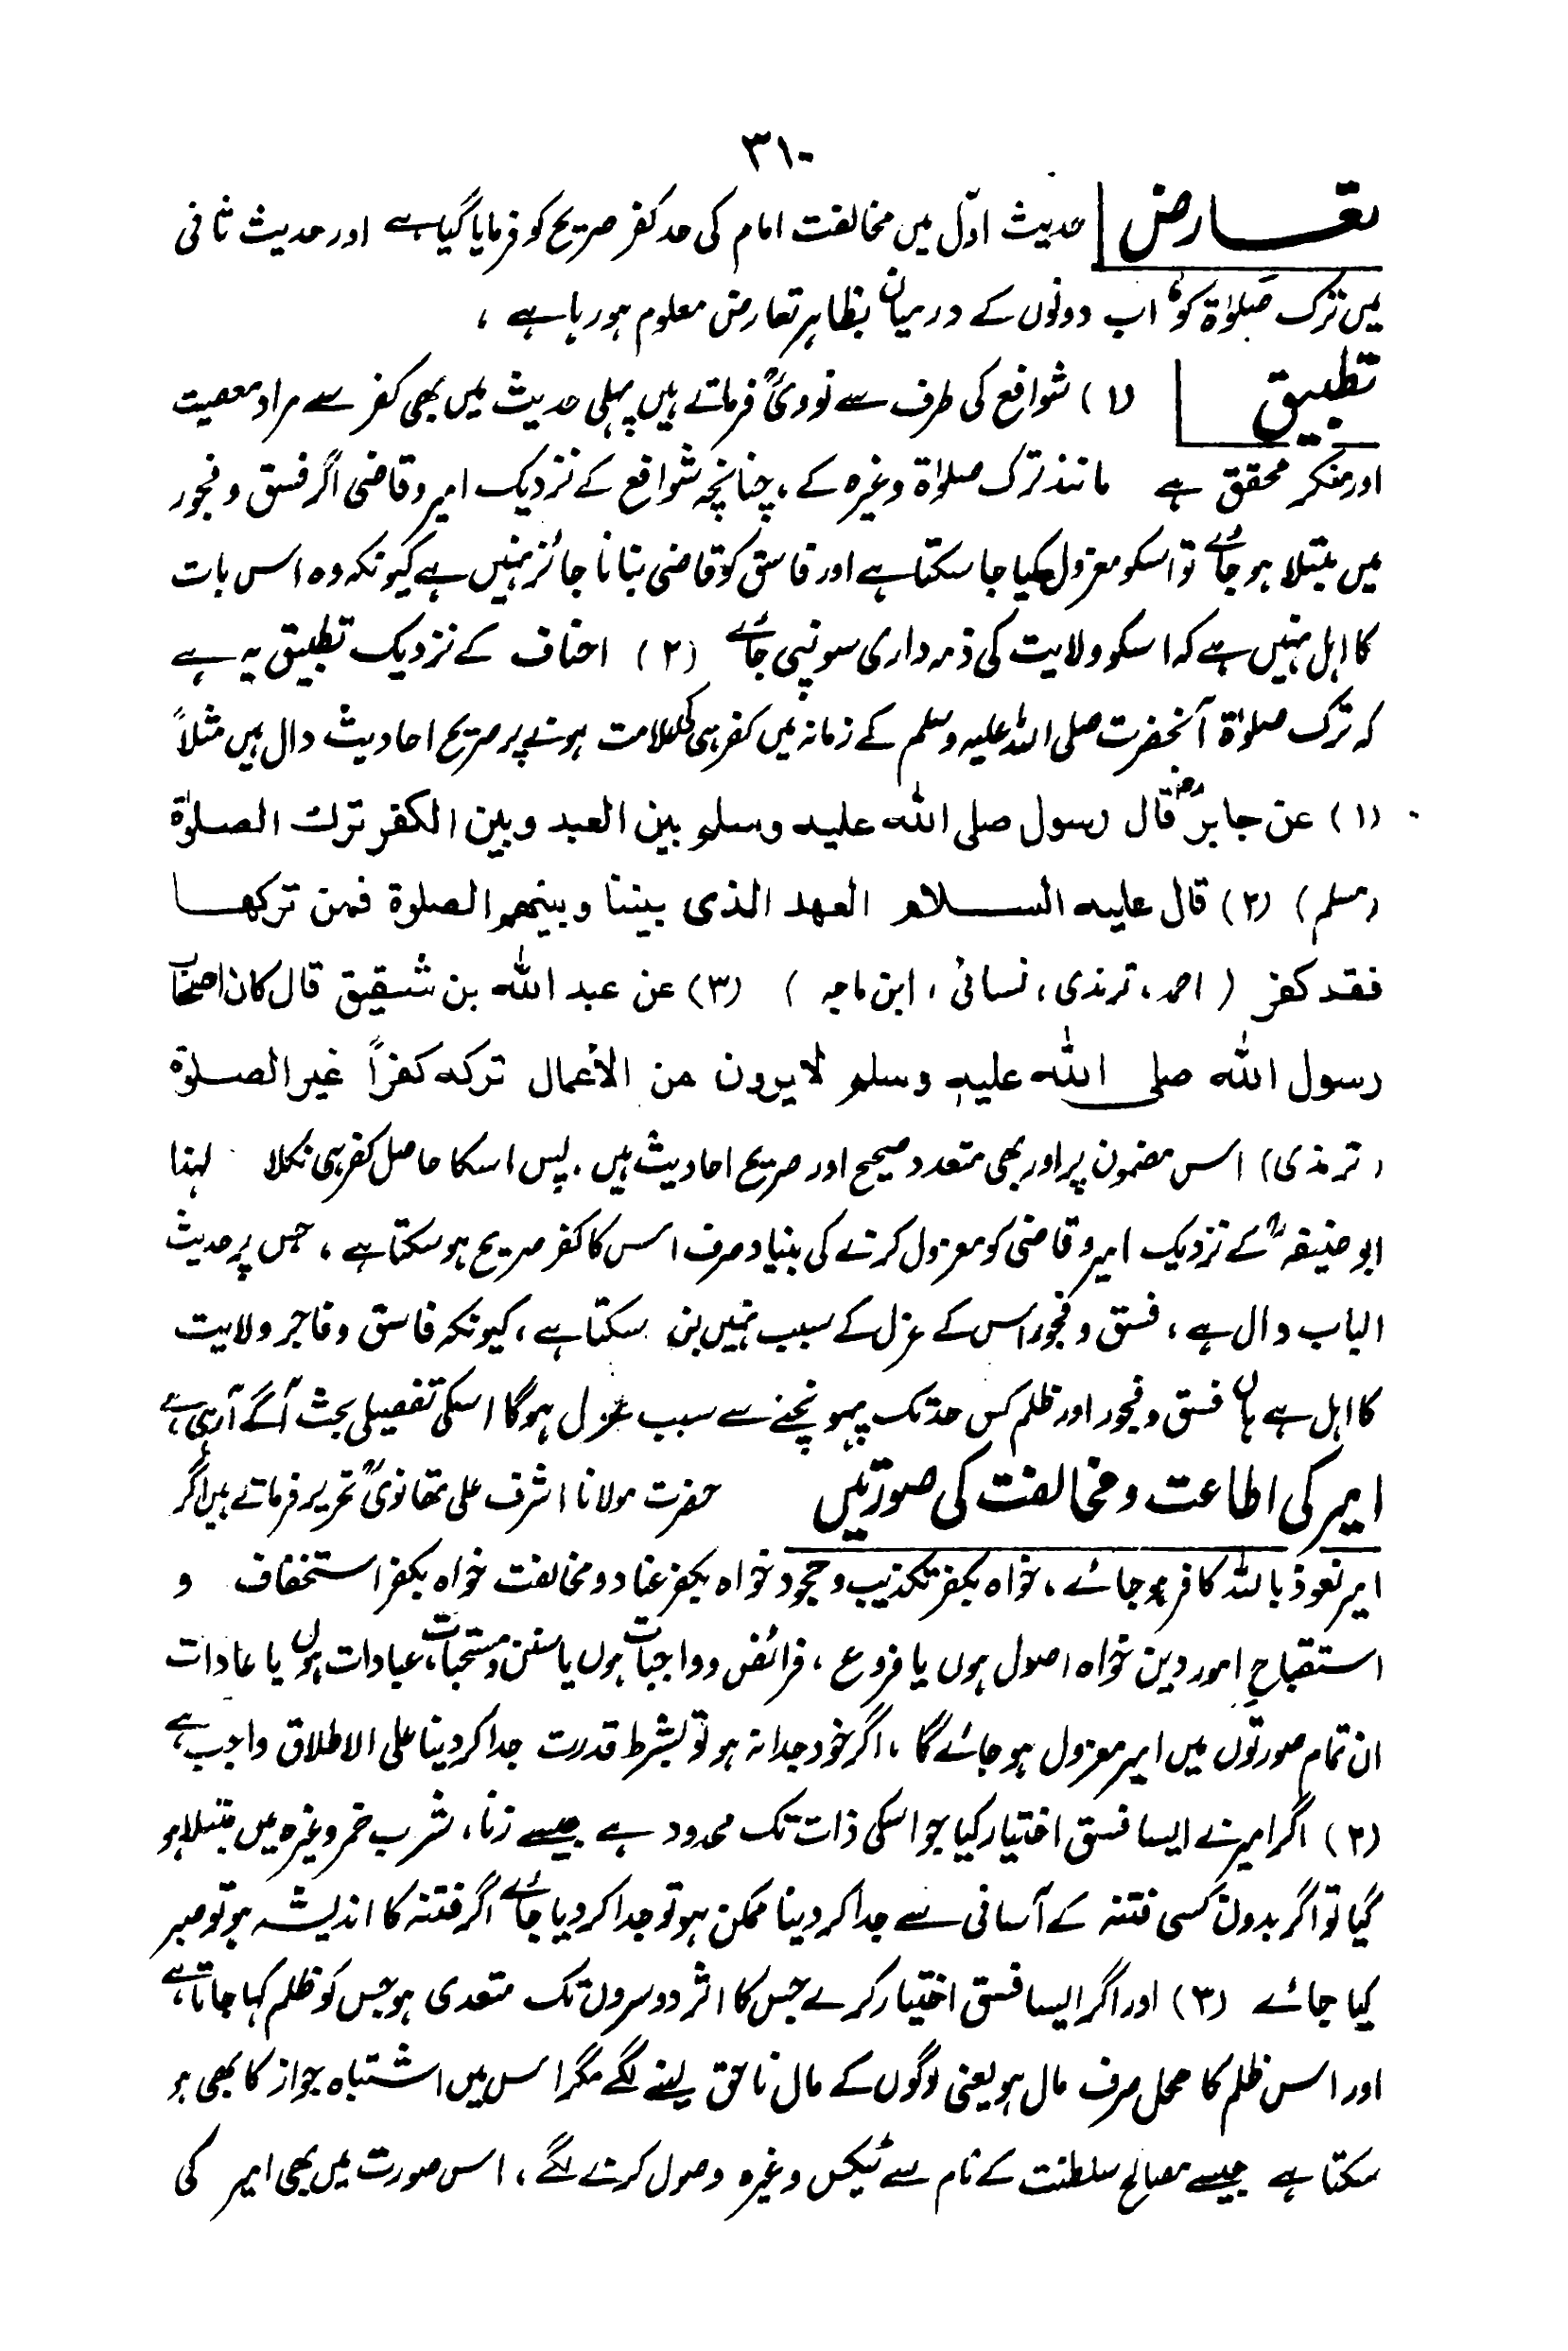 ۳۱۰
تعارض | حدیث اوّل میں مخالفت امام کی حد کفر صریح کو فرمایا گیا ہے اور حدیث ثانی
میں ترک صَلوٰۃ کو، اب دونوں کے درمیان بظاہر تعارض معلوم ہو رہا ہے ،
تطبیق | (۱) شوافع کی طرف سے نوویؒ فرماتے ہیں پہلی حدیث میں بھی کفر سے مراد معصیت
اور منکر محقق ہے مانند ترک صلوٰۃ وغیرہ کے ، چنانچہ شوافع کے نزدیک امیر و قاضی اگر فسق و فجور
میں مبتلا ہو جائے تو اسکو معزول کیا جا سکتا ہے اور فاسق کو قاضی بنانا جائز نہیں ہے کیونکہ وہ اس بات
کا اہل نہیں ہے کہ اسکو ولایت کی ذمہ داری سونپی جائے (۲) احناف کے نزدیک تطبیق یہ ہے
کہ ترک صلوٰۃ آنحضرت صلی اللہ علیہ وسلم کے زمانہ میں کفر ہی کی علامت ہونے پر صریح احادیث دال ہیں مثلاً
(۱) عن جابرؓ قال رسول صلی اللہ علیہ وسلم بین العبد وبین الکفر ترک الصلوٰۃ
(مسلم) (۲) قال علیہ السلام العهد الذی بیننا وبینهم الصلوۃ فمن ترکها
فقد کفر ( احمد ، ترمذی ، نسائی ، ابن ماجہ ) (۳) عن عبد اللہ بن شقیق قال کان اصحاب
رسول اللہ صلی اللہ علیہ وسلم لا یرون من الأعمال ترکہ کفراً غیر الصلوۃ
(ترمذی) اس مضمون پر اور بھی متعدد صحیح اور صریح احادیث ہیں ، پس اسکا حاصل کفر ہی نکلا لہذا
ابو حنیفہؒ کے نزدیک امیر و قاضی کو معزول کرنے کی بنیاد صرف اس کا کفر صریح ہو سکتا ہے ، جس پر حدیث
الباب دال ہے ، فسق و فجور اس کے عزل کے سبب نہیں بن سکتا ہے ، کیونکہ فاسق و فاجر ولایت
کا اہل ہے ہاں فسق و فجور اور ظلم کس حد تک پہونچنے سے سبب عزل ہوگا اسکی تفصیلی بحث آگے آ رہی ہے ،
امیر کی اطاعت و مخالفت کی صورتیں حضرت مولانا اشرف علی تھانویؒ تحریر فرماتے ہیں اگر
امیر نعوذ باللہ کافر ہو جائے ، خواہ بکفر تکذیب و جحود خواہ بکفر عناد و مخالفت خواہ بکفر استخفاف و
استقباحِ امور دین خواہ اصول ہوں یا فروع ، فرائض و واجبات ہوں یا سنن و مستحبات ، عبادات ہوں یا عادات
ان تمام صورتوں میں امیر معزول ہو جائے گا ، اگر خود جدا نہ ہو تو بشرط قدرت جدا کر دینا علی الاطلاق واجب ہے
(۲) اگر امیر نے ایسا فسق اختیار کیا جو اسکی ذات تک محدود ہے جیسے زنا ، شرب خمر وغیرہ میں مبتلا ہو
گیا تو اگر بدون کسی فتنہ کے آسانی سے جدا کر دینا ممکن ہو تو جدا کر دیا جائے اگر فتنہ کا اندیشہ ہو تو صبر
کیا جائے (۳) اور اگر ایسا فسق اختیار کرے جس کا اثر دوسروں تک متعدی ہو جس کو ظلم کہا جاتا ہے ،
اور اس ظلم کا محل صرف مال ہو یعنی لوگوں کے مال ناحق لینے لگے مگر اس میں اشتباہ جواز کا بھی ہو
سکتا ہے جیسے مصالح سلطنت کے نام سے ٹیکس وغیرہ وصول کرنے لگے ، اس صورت میں بھی امیر کی